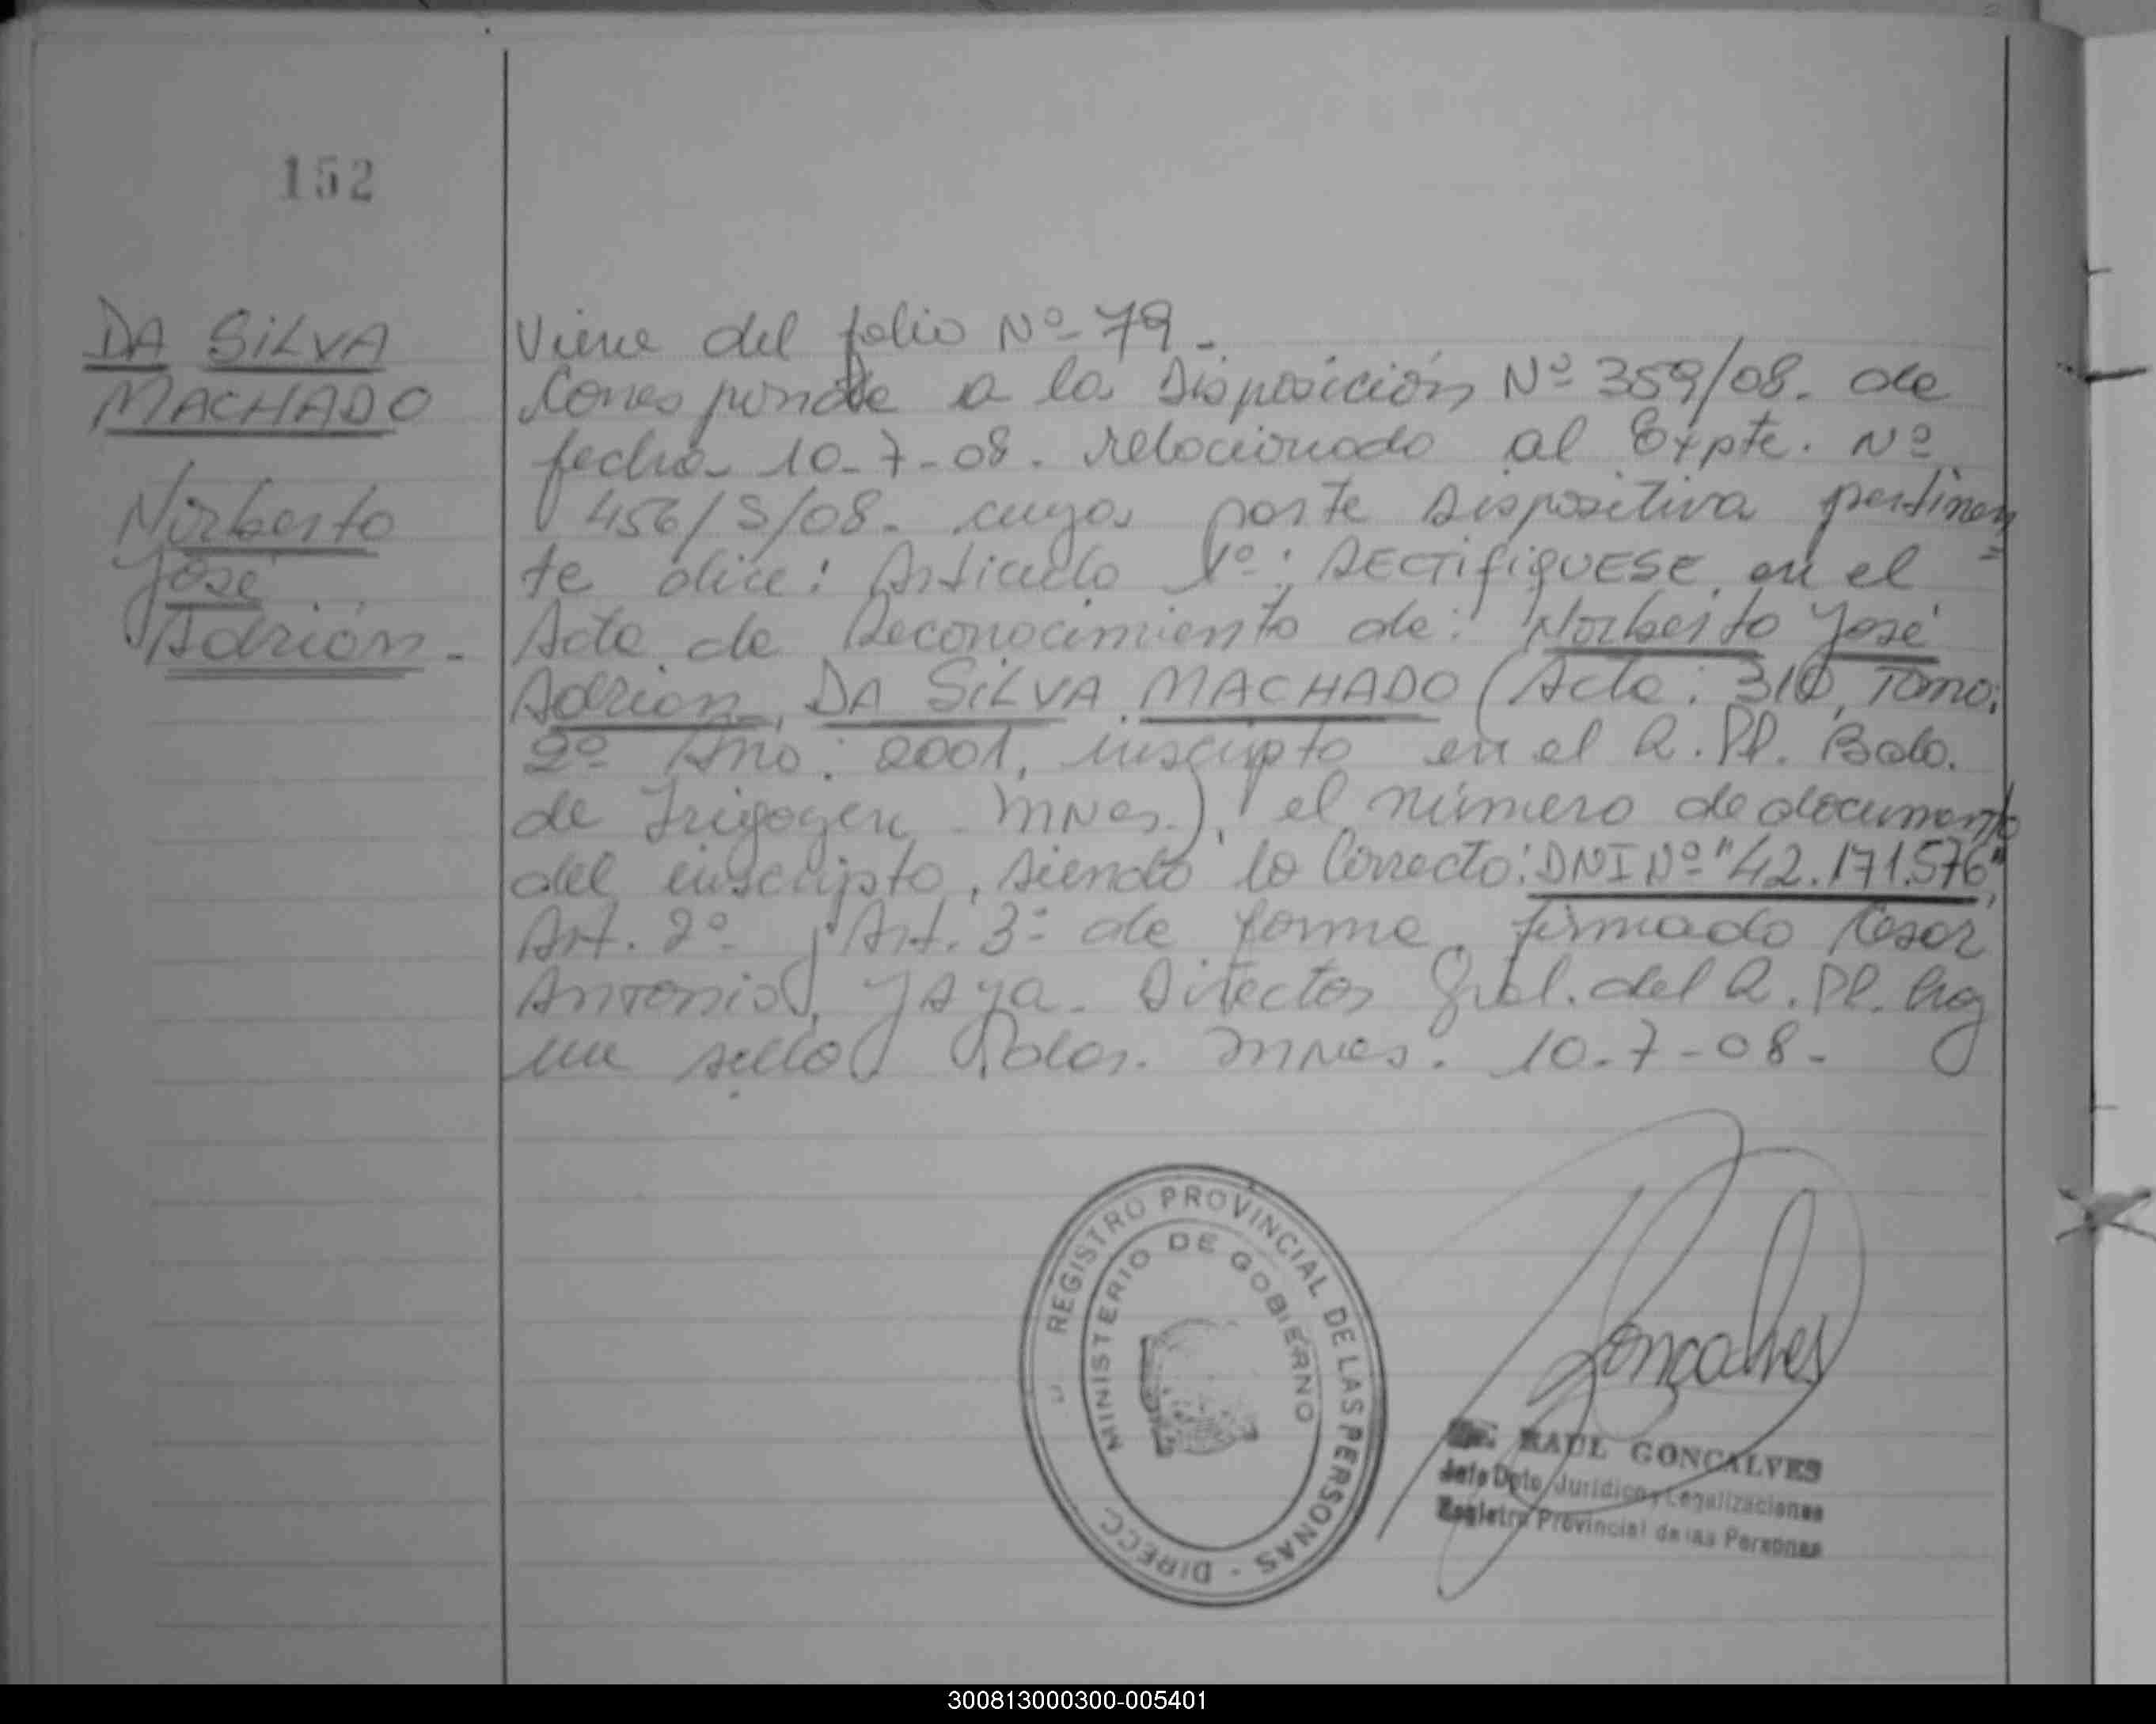 152
DA SILVA
MACHADO
Norberto
José
Adrián.-
Viene del folio Nº 79.-
Corresponde a la Disposición Nº 359/08. de
fecha 10-7-08. relacionado al Expte. Nº
456/S/08. cuya parte Dispositiva pertinen
te dice: Articulo 1º: RECTIFIQUESE en el
Acta de Reconocimiento de: Norberto José
Adrian, DA SILVA MACHADO (Acta: 310, Tomo:
2º Año: 2001, inscripto en el R.PP. Bdo.
de Irigoyen - MNes.), el número de documento
del inscripto, siendo lo Correcto: DNI Nº "42.171.576",
Art. 2º y Art. 3º de forma. firmado Cesar
Antonio, Director Gral. del R.PP. hay
un sello Pdas. MNes. 10-7-08.-
REGISTRO PROVINCIAL DE LAS PERSONAS - DIRECC.
MINISTERIO DE GOBIERNO
Goncalves
RAUL GONCALVES
Jefe Dpto. Jurídico y Legalizaciones
Registro Provincial de las Personas
300813000300-005401